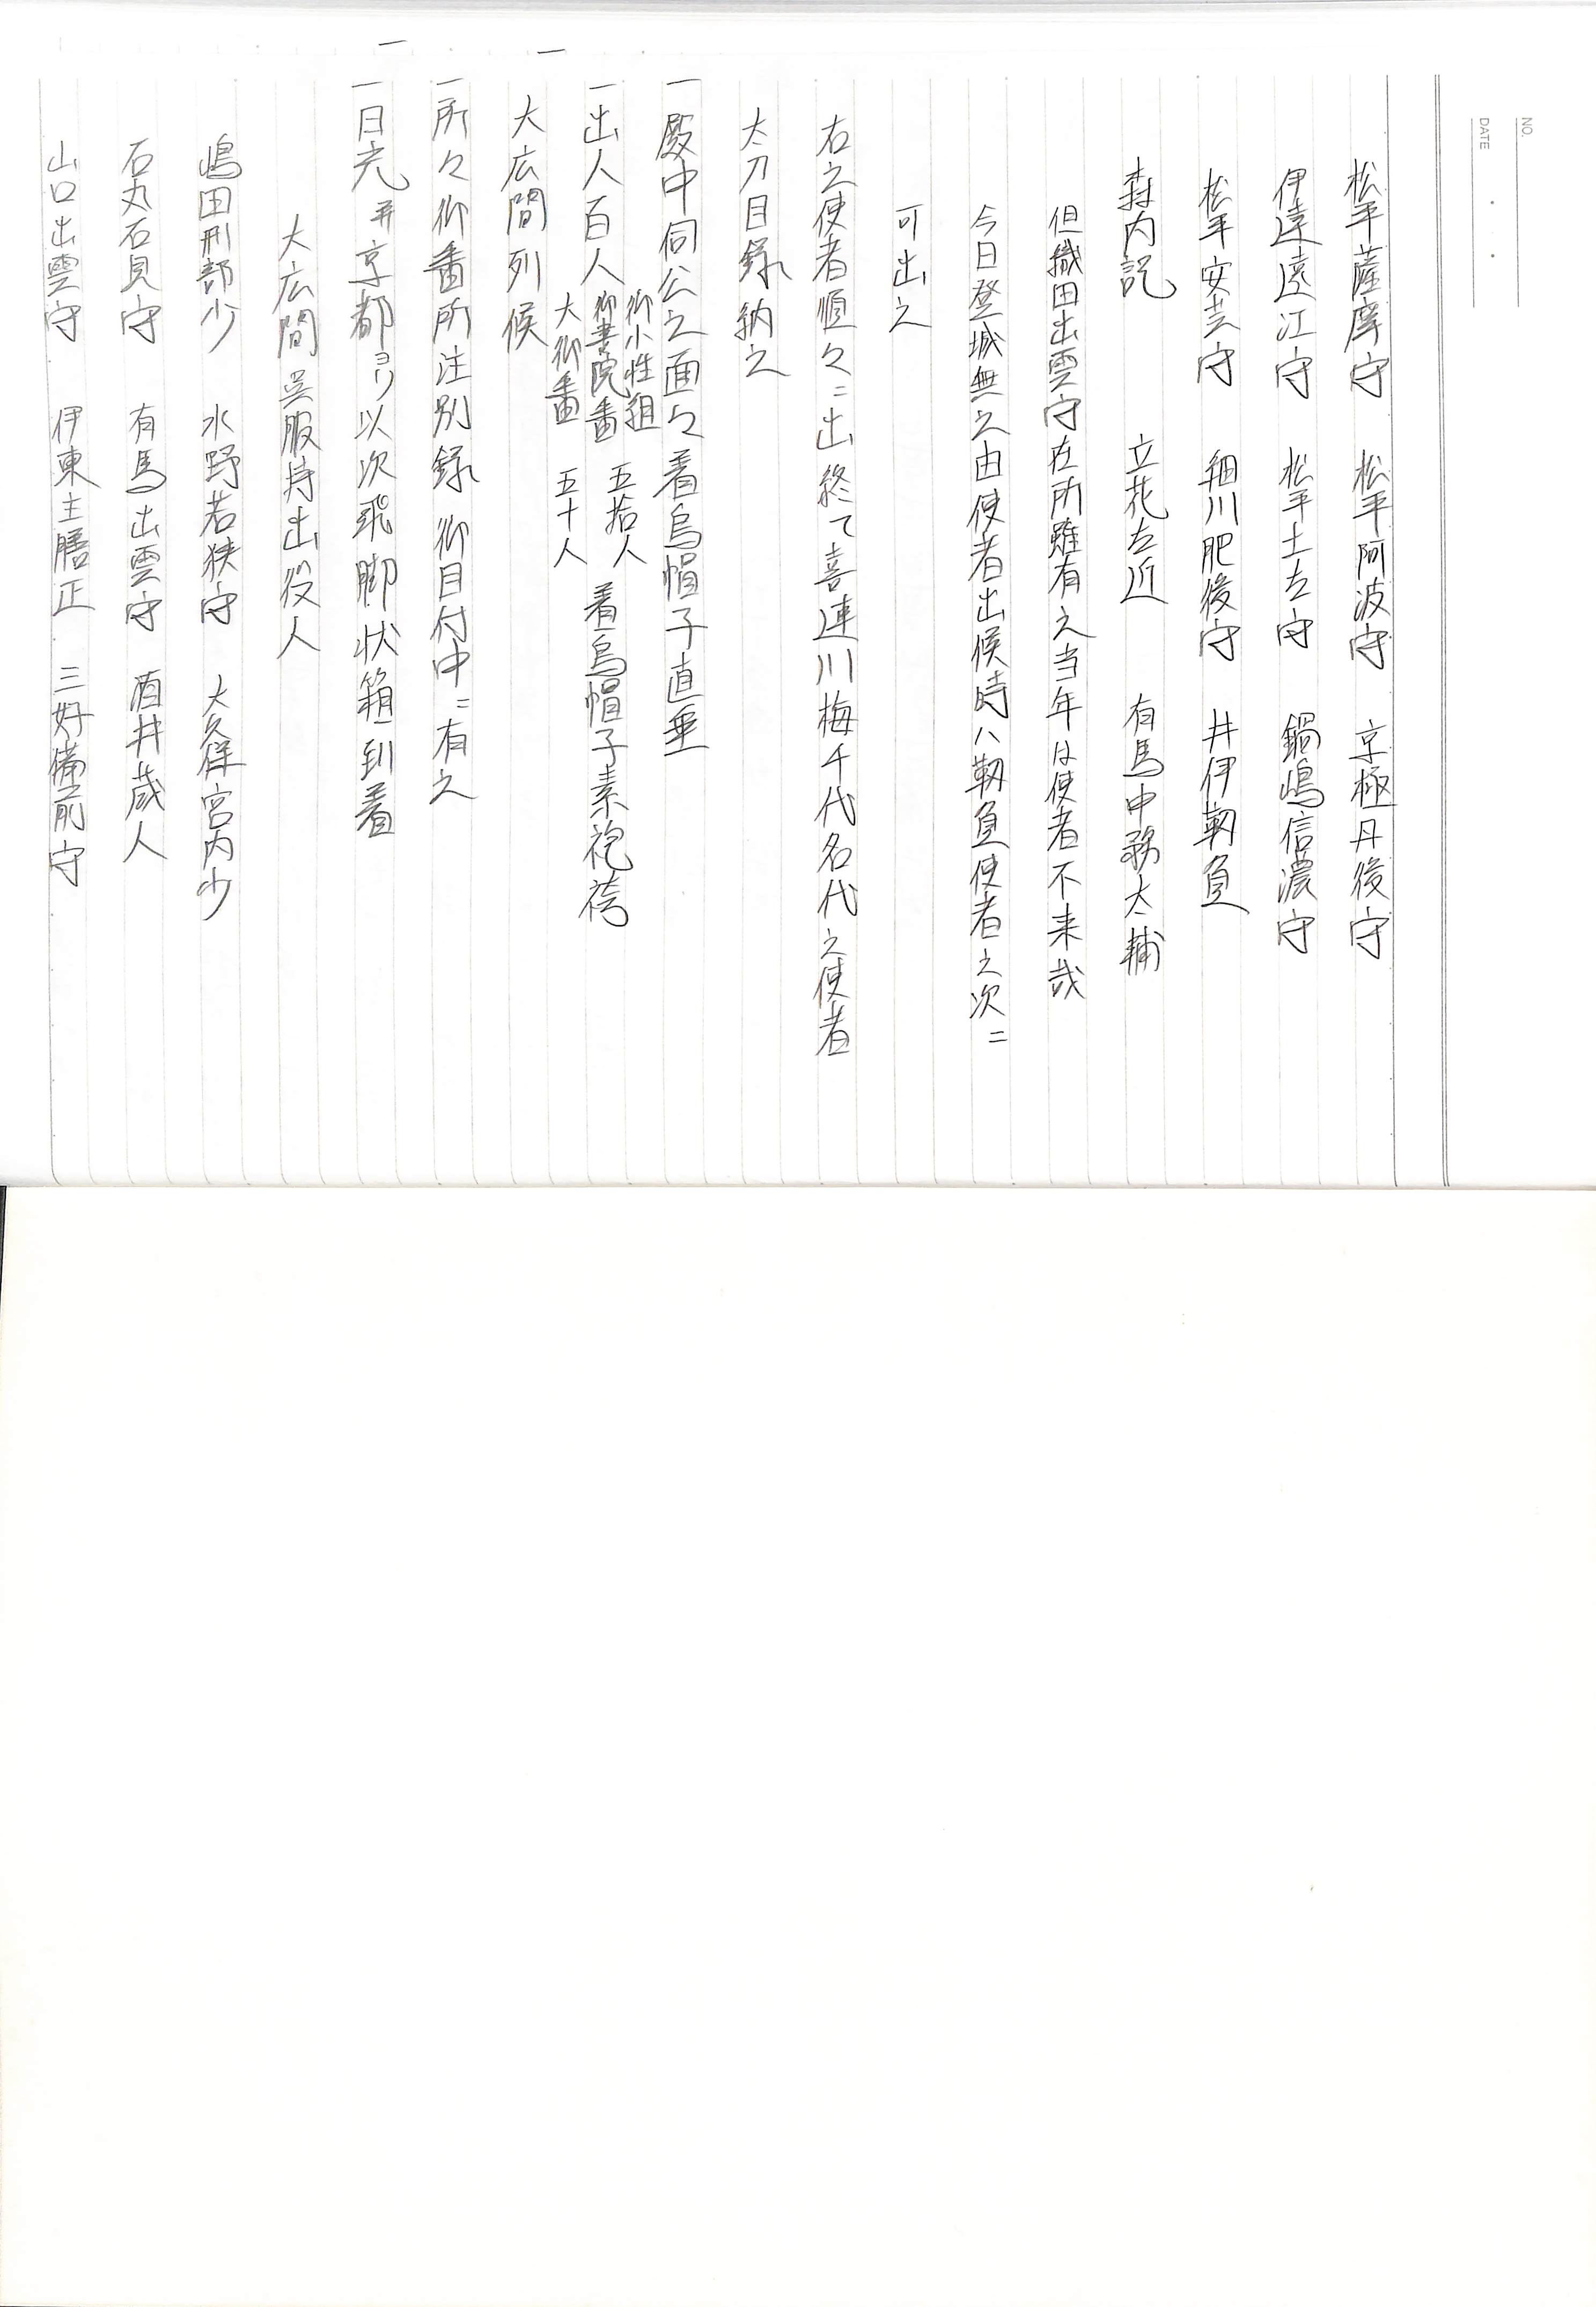 NO.
DATE
松平薩摩守　松平阿波守　京極丹後守
伊達遠江守　松平土左守　鍋嶋信濃守
松平安芸守　細川肥後守　井伊靱負
森内記　立花左近　有馬中務太輔
但織田出雲守在所雖有之当年は使者不来哉
今日登城無之由使者出候時ハ靱負使者之次ニ
可出之
右之使者順々ニ出終て喜連川梅千代名代之使者
太刀目録納之
一殿中伺公之面々着烏帽子直垂
一出人百人 御小性組 御書院番 五拾人 大御番 五十人 着烏帽子素袍袴
大広間列候
一所々御番所注別録御目付中ニ有之
一日光并京都ヨリ以次飛脚状箱到着
大広間呉服持出役人
嶋田刑部少　水野若狭守　大久保宮内少
石丸石見守　有馬出雲守　酒井蔵人
山口出雲守　伊東主膳正　三好備前守